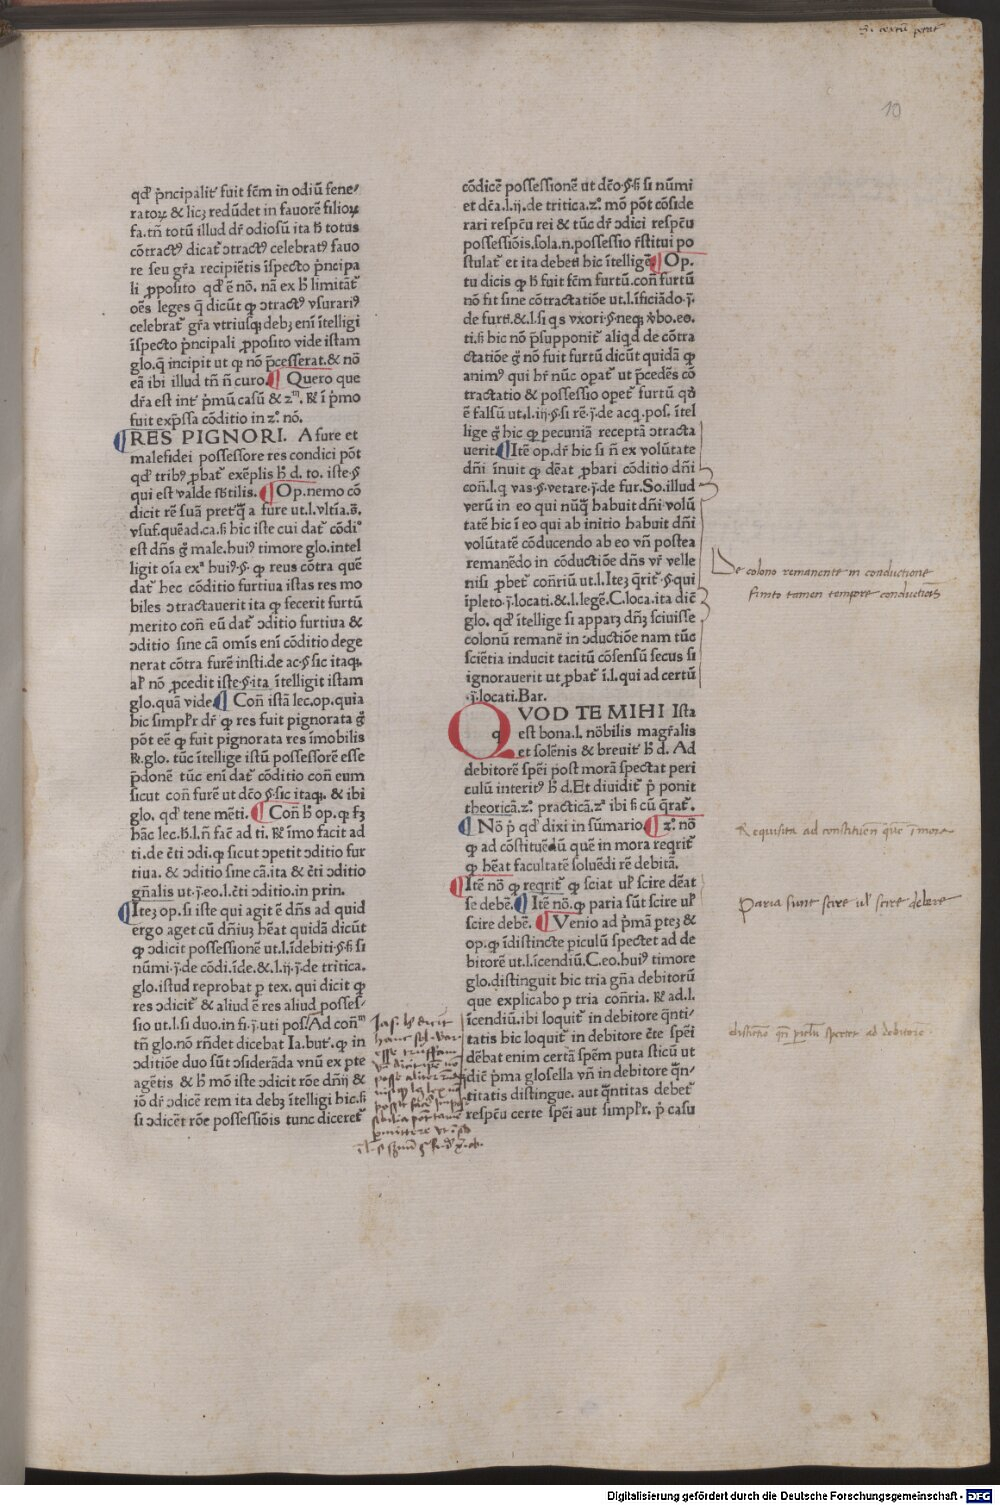 10
qđ p̄ncipalit᷑ fuit fc̄m in odiū fene⸗
ratoꝝ & licꝫ redūdet in fauorē filioꝝ
fa.tn̄ totū illud dr̄ odiosū ita ħ totus
cōtractꝰ dicat᷑ ↄtractꝰ celebratꝰ fauo
re seu gr̄a recipiētis īspecto p̄ncipa
li ꝓposito qđ ē nō. nā ex ħ limitāt᷑
oēs leges q̄ dicūt ꝙ ↄtractꝰ vsurariꝰ
celebrat᷑ gr̄a vtriusqꝫ debꝫ enī ītelligi
īspecto p̄ncipali ꝓposito vide istam
glo.q̄ incipit ut ꝙ nō p̄cesserat.& nō
eā ibi illud tn̄ n̄ curo.¶ Quero que
dr̄a est int᷑ p̄mū casū & zᵐ. ꝶ ī p̄mo
fuit exp̄ssa cōditio in z.° nō.
¶RES PIGNORI. A fure et
malefidei possessore res condici pōt
qđ tribꝰ ꝓbat᷑ exēplis ħ d. to. iste.§
qui est valde sb̄tilis. ¶Op.nemo cō
dicit rē suā pret᷑q̄ a fure ut.l.vltīa.s̄.
vsuf.quēad.ca.s; hic iste cui dat᷑ cōdi°
est dn̄s g̊ male.huiꝰ timore glo.intel
ligit oīa exᵃ huiꝰ.§. ꝙ reus cōtra quē
dat᷑ hec cōditio furtiua istas res mo
biles ↄtractauerit ita ꝙ fecerit furtū
merito con̄ eū dat᷑ ↄditio furtiua &
ↄditio sine cā omīs enī cōditio dege
nerat cōtra furē insti.de ac.§ sic itaqꝫ.
al̓ nō ꝓcedit iste.§.ita ītelligit istam
glo.quā vide.¶ Con̄ istā lec.op.quia
hic simpl̓r dr̄ ꝙ res fuit pignorata g̊
pōt eē ꝙ fuit pignorata res īmobilis
ꝶ.glo. tūc ītellige istū possessorē esse
p̄donē tūc enī dat᷑ cōditio con̄ eum
sicut con̄ furē ut dc̄o.§.sic itaqꝫ. & ibi
glo. qđ tene mēti. ¶ Con̄ ħ op.ꝙ fꝫ
hāc lec.ħ.l.n̄ fac̄ ad ti. ꝶ īmo facit ad
ti.de c̄ti ↄdi.ꝙ sicut ↄpetit ↄditio fur
tiua. & ↄditio sine cā.ita & c̄ti ↄditio
gn̄alis ut.j̄.eo.l.c̄ti ↄditio.in prin.
¶Iteꝫ op.si iste qui agit ē dn̄s ad quid
ergo aget cū dn̄iuꝫ hēat quidā dicūt
ꝙ ↄdicit possessionē ut.l.īdebiti.§.s; si
nūmi.j̄.de cōdi.īde.&.l.ij.j̄.de tritica.
glo.istud reprobat p tex. qui dicit ꝙ
res ↄdicit᷑ & aliud ē res aliud posses⸗
sio ut.l.si duo.in fi.j̄.uti pos.Ad con̄ᵐ
tn̄ glo.nō rn̄det dicebat Ia.but᷑.ꝙ in
ↄditiōe duo sūt ↄsiderāda vnū ex pte
agētis & ħ mō iste ↄdicit rōe dn̄ij &
iō dr̄ ↄdicē rem ita debꝫ ītelligi hic.s;
si ↄdicēt᷑ rōe possessiōis tunc diceret᷑
cōdicē possessionē ut dc̄o.§.s; si nūmi
et dc̄a.l.ij.de tritica.z.° mō pōt cōside
rari respc̄u rei & tūc dr̄ ↄdici respc̄u
possessiōis.sola.n.possessio r̄stitui po
stulat᷑ et ita debet᷑ hic ītellige.¶Op.
tu dicis ꝙ ħ fuit fc̄m furtū.con̄ furtū
nō fit sine cōtractatiōe ut.l.īficiādo.j̄.
de furt᷑.&.l.si q s vxori.§.neqꝫ v̄bo.eo.
ti.s; hic nō p̄supponit᷑ aliq̓d de cōtra
ctatiōe g̊ nō fuit furtū dicūt quidā ꝙ
animꝰ qui hr̄ nūc opat᷑ ut p̄cedēs cō
tractatio & possessio opet᷑ furtū qđ
ē falsū ut.l.iij.§.si rē.j̄.de acq.pos. ītel
lige g̊ hic ꝙ pecuniā receptā ↄtracta
uerit.¶Itē op.dr̄ hic si n̄ ex volūtate
dn̄i īnuit ꝙ dēat ꝓbari cōditio dn̄i
con̄.l.q vas.§.vetare.j̄.de fur.So.illud
verū in eo qui nūq̄ habuit dn̄i volū
tatē hic ī eo qui ab initio habuit dn̄i
volūtatē cōducendo ab eo vn̄ postea
remanēdo in cōductiōe dn̄s vr̄ velle
nisi ꝓbet᷑ con̄riū ut.l.Iteꝫ q̄rit᷑.§.qui
īpleto.j̄.locati.&.l.legē.C.loca.ita dicē
glo. qđ ītellige si apparꝫ dn̄ꝫ sciuisse
colonū remanē in ↄductiōe nam tūc
sciētia inducit tacitū cōsensū secus si
ignorauerit ut ꝓbat᷑ ī.l.qui ad certū
.j̄.locati.Bar.
QVOD TE MIHI Ista
q est bona.l. nōbilis magr̄alis
et solēnis & breuit᷑ ħ d. Ad
debitorē spēi post morā spectat peri
culū interitꝰ ħ d.Et diuidit᷑ p̄ ponit
theoricā.z.° practicā.zᵃ ibi s; cū q̄rat᷑.
¶ Nō p̄ qđ dixi in sūmario.¶ z.° nō
ꝙ ad cōstituēdū quē in mora reqrit᷑
ꝙ hēat facultatē soluēdi rē debitā.
¶Itē nō ꝙ reqrit᷑ ꝙ sciat ul̓ scire dēat
se debē.¶ Itē nō.ꝙ paria sūt scire ul̓
scire debē. ¶ Venio ad p̄mā pteꝫ &
op.ꝙ īdistincte piculū spectet ad de
bitorē ut.l.īcendiū.C.eo.huiꝰ timore
glo.distinguit hic tria gn̄a debitorū
que explicabo p tria con̄ria. ꝶ ad.l.
īcendiū.ibi loquit᷑ in debitore q̄nti⸗
tatis hic loquit᷑ in debitore c̄te spēi
dēbat enim certā spēm puta sticū ut
dic̄ p̄ma glosella vn̄ in debitore q̄n⸗
titatis distingue. aut q̄ntitas debet᷑
respc̄u certe spēi aut simpl̓r. p̄ casu
De colono remanente in conductione
finito tamen tempore conductiōis
Requisita ad constituen̄ quē ī mora
Paria sunt scire ul̓ scire debere